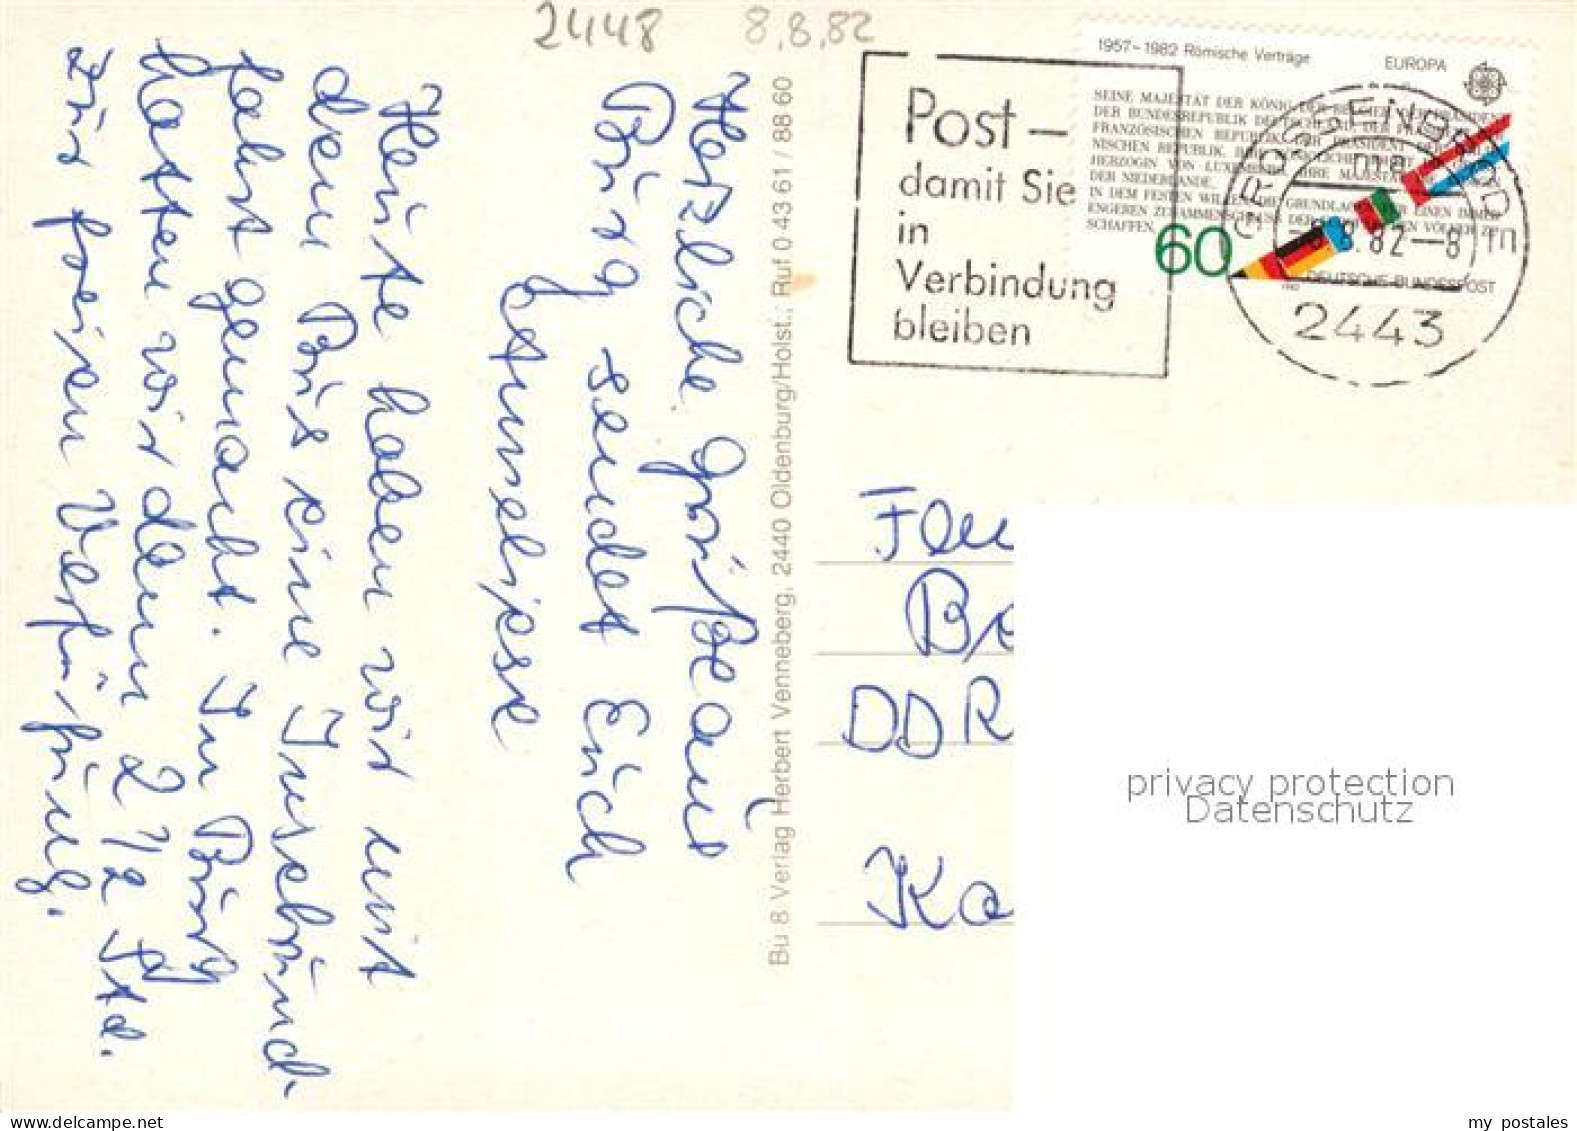 2448
8.8.82
Herzliche Grüße aus
Burg sendet Euch
Anneliese
Heute haben wir mit
dem Bus eine Inselrund-
fahrt gemacht. In Burg
hatten wir dann 2 1/2 Std.
zur freien Verfügung.
Bu 8 Verlag Herbert Venneberg, 2440 Oldenburg/Holst., Ruf 0 43 61 / 88 60
Post –
damit Sie
in
Verbindung
bleiben
1957–1982 Römische Verträge
EUROPA
SEINE MAJESTÄT DER KÖNIG DER
DER BUNDESREPUBLIK DEUTSCHLAND, DER
FRANZÖSISCHEN REPUBLIK, DER PRÄSIDENT DER
NISCHEN REPUBLIK, IHRE
HERZOGIN VON LUXEMBURG, IHRE MAJESTÄT
DER NIEDERLANDE,
IN DEM FESTEN WILLEN, DIE GRUNDLAGEN FÜR EINEN IMMER
ENGEREN ZUSAMMENSCHLUSS DER
SCHAFFEN,
60
DEUTSCHE BUNDESPOST
GROSSENBROD
8.82–8
2443
Fam
DDR
Ka
privacy protection
Datenschutz
my postales